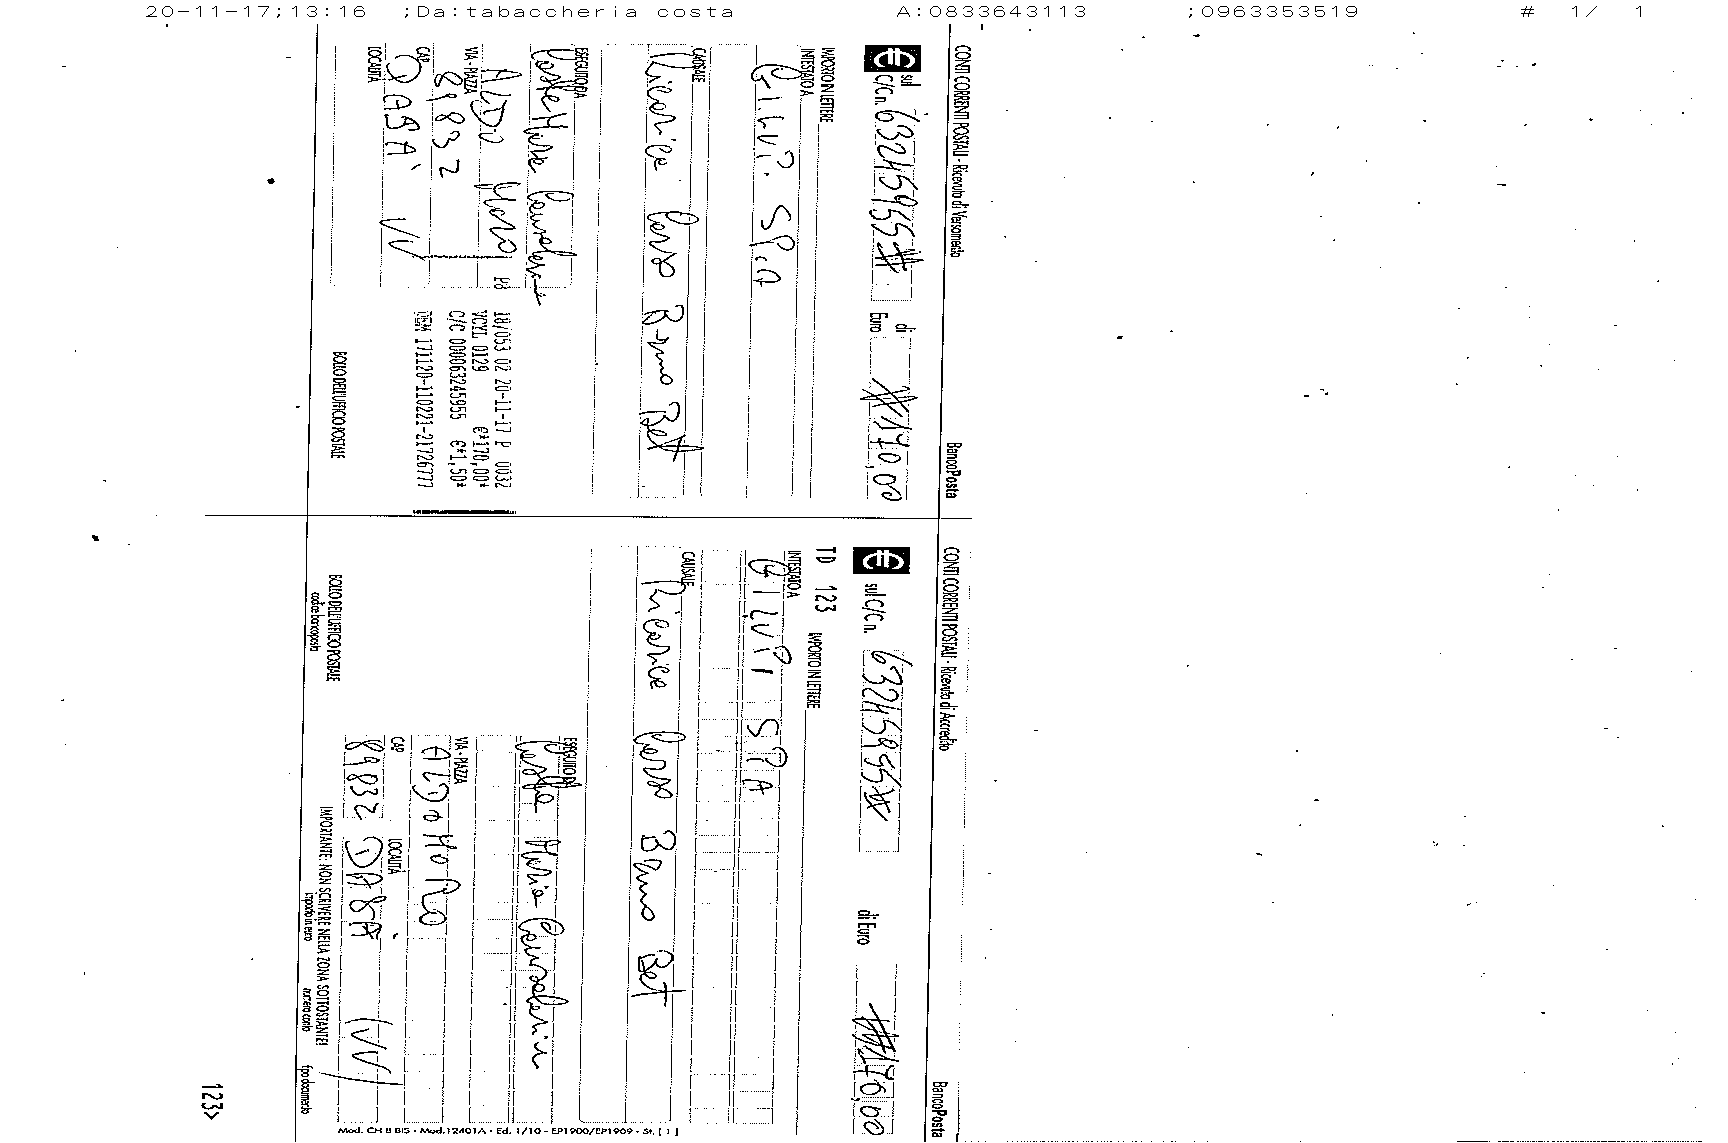 20-11-17;13:16 ;Da:tabaccheria costa A:0833643113 ;0963353519 # 1/ 1
CONTI CORRENTI POSTALI - Ricevuta di Versamento BancoPosta
sul C/C n. 63245955# di Euro #170,00
IMPORTO IN LETTERE
INTESTATO A
GILVI. SP.A
CAUSALE
Ricarica Corso Bruno Bet
ESEGUITO DA
Costa Maria
VIA - PIAZZA
ALDO Moro
CAP
89832
LOCALITÀ
DASA' VV
18/053 02 20-11-17 P 0032
VCYL 0129 €*170,00*
C/C 000063245955 €*1,50*
DEM 171120-110221-21726777
BOLLO DELL'UFFICIO POSTALE
CONTI CORRENTI POSTALI - Ricevuta di Accredito BancoPosta
sul C/C n. 63245955# di Euro #170,00
TD 123 IMPORTO IN LETTERE
INTESTATO A
GILVI SPA
CAUSALE
Ricarica Corso Bruno Bet
ESEGUITO DA
Costa Maria
VIA - PIAZZA
ALDO MORO
CAP LOCALITÀ
89832 DASA' (VV)
BOLLO DELL'UFFICIO POSTALE
codice bancoposta
IMPORTANTE: NON SCRIVERE NELLA ZONA SOTTOSTANTE!
importo in euro numero conto tipo documento
123>
Mod. CH 8 BIS - Mod. 12401A - Ed. 1/10 - EP1900/EP1909 - St. [ 1 ]